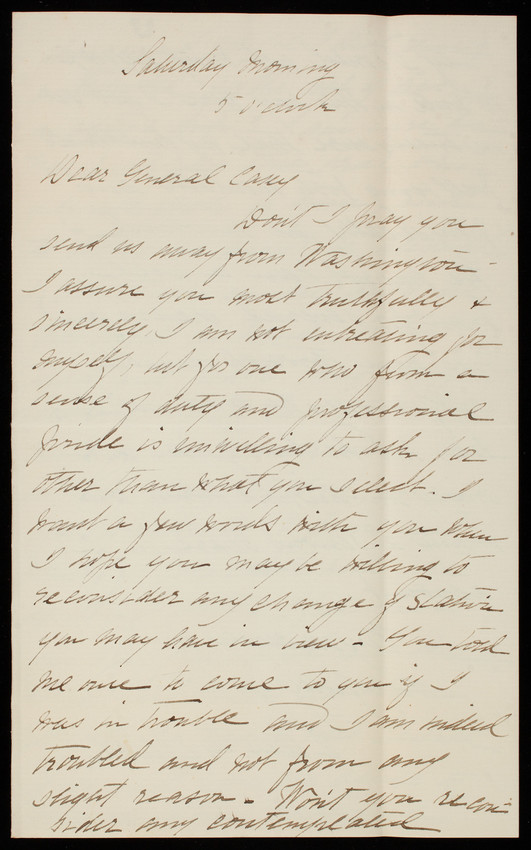 Saturday Morning
5 o'clock
Dear General Casey
Don't I pray you
send us away from Washington -
I assure you most truthfully &
sincerely, I am not entreating for
myself, but for one who from a
sense of duty and professional
pride is unwilling to ask for
other than what you select. I
want a few words with you when
I hope you may be willing to
reconsider any change of Station
you may have in view - You told
me once to come to you if I
was in trouble and I am indeed
troubled and not from any
slight reason - Won't you recon-
sider any contemplated